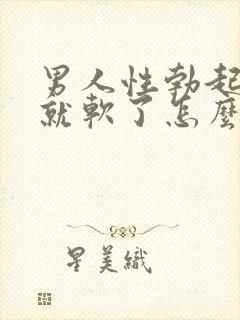 男人性勃起
就軟了怎麼
星美織